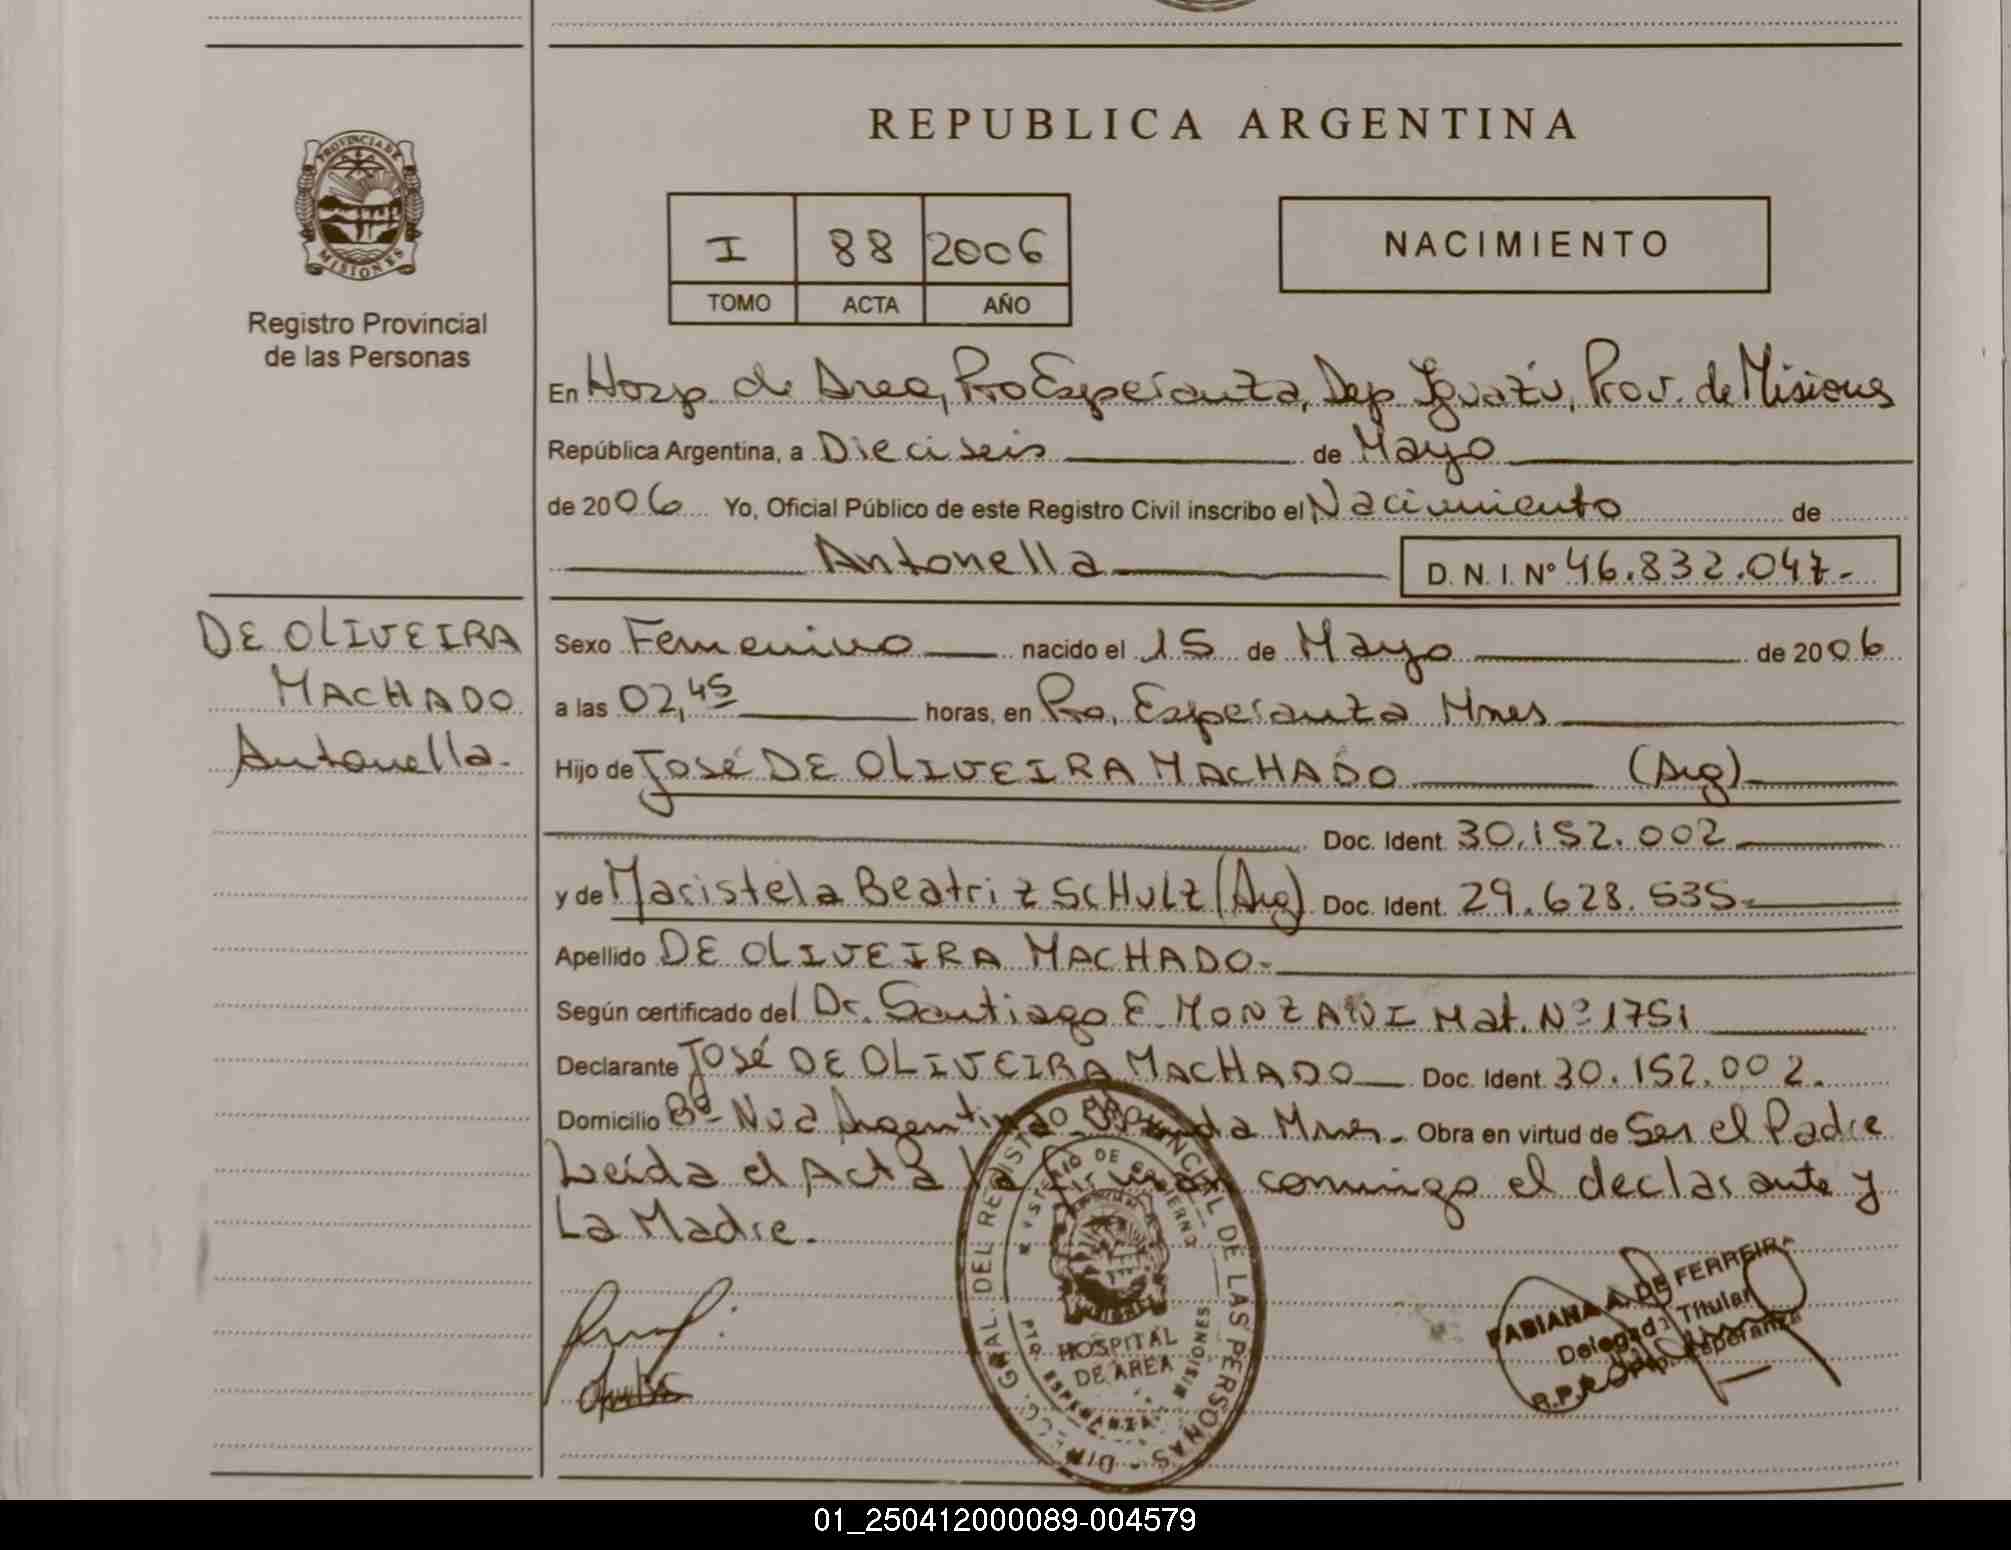 REPUBLICA ARGENTINA
PROVINCIA DE
MISIONES
Registro Provincial
de las Personas
I 88 2006
TOMO ACTA AÑO
NACIMIENTO
En Hosp. de Area, Pto Esperanza, Dep Iguazú, Prov. de Misiones
República Argentina, a Dieciseis de Mayo
de 2006 Yo, Oficial Público de este Registro Civil inscribo el Nacimiento de
Antonella D.N.I. Nº 46.832.047.-
DE OLIVEIRA
MACHADO
Antonella.-
Sexo Femenino nacido el 15 de Mayo de 2006
a las 02,45 horas, en Pto. Esperanza Mnes
Hijo de José DE OLIVEIRA MACHADO (Arg)
Doc. Ident. 30.152.002
y de Maristela Beatriz SCHULZ (Arg) Doc. Ident. 29.628.535.-
Apellido DE OLIVEIRA MACHADO.-
Según certificado del Dr. Santiago E. MONZANI Mat. Nº 1751
Declarante José DE OLIVEIRA MACHADO Doc. Ident. 30.152.002.
Domicilio Bº Nva Argentina Mnes.- Obra en virtud de Ser el Padre
Leída el Acta la firman conmigo el declarante y
La Madre.-
DIRECC. GRAL. DEL REGISTRO PROVINCIAL DE LAS PERSONAS
MINISTERIO DE GOBIERNO
HOSPITAL
DE AREA
PTO. ESPERANZA - MISIONES
FABIANA A. DE FERREIRA
Delegada Titular
R.P.P. Pto. Esperanza
01_250412000089-004579